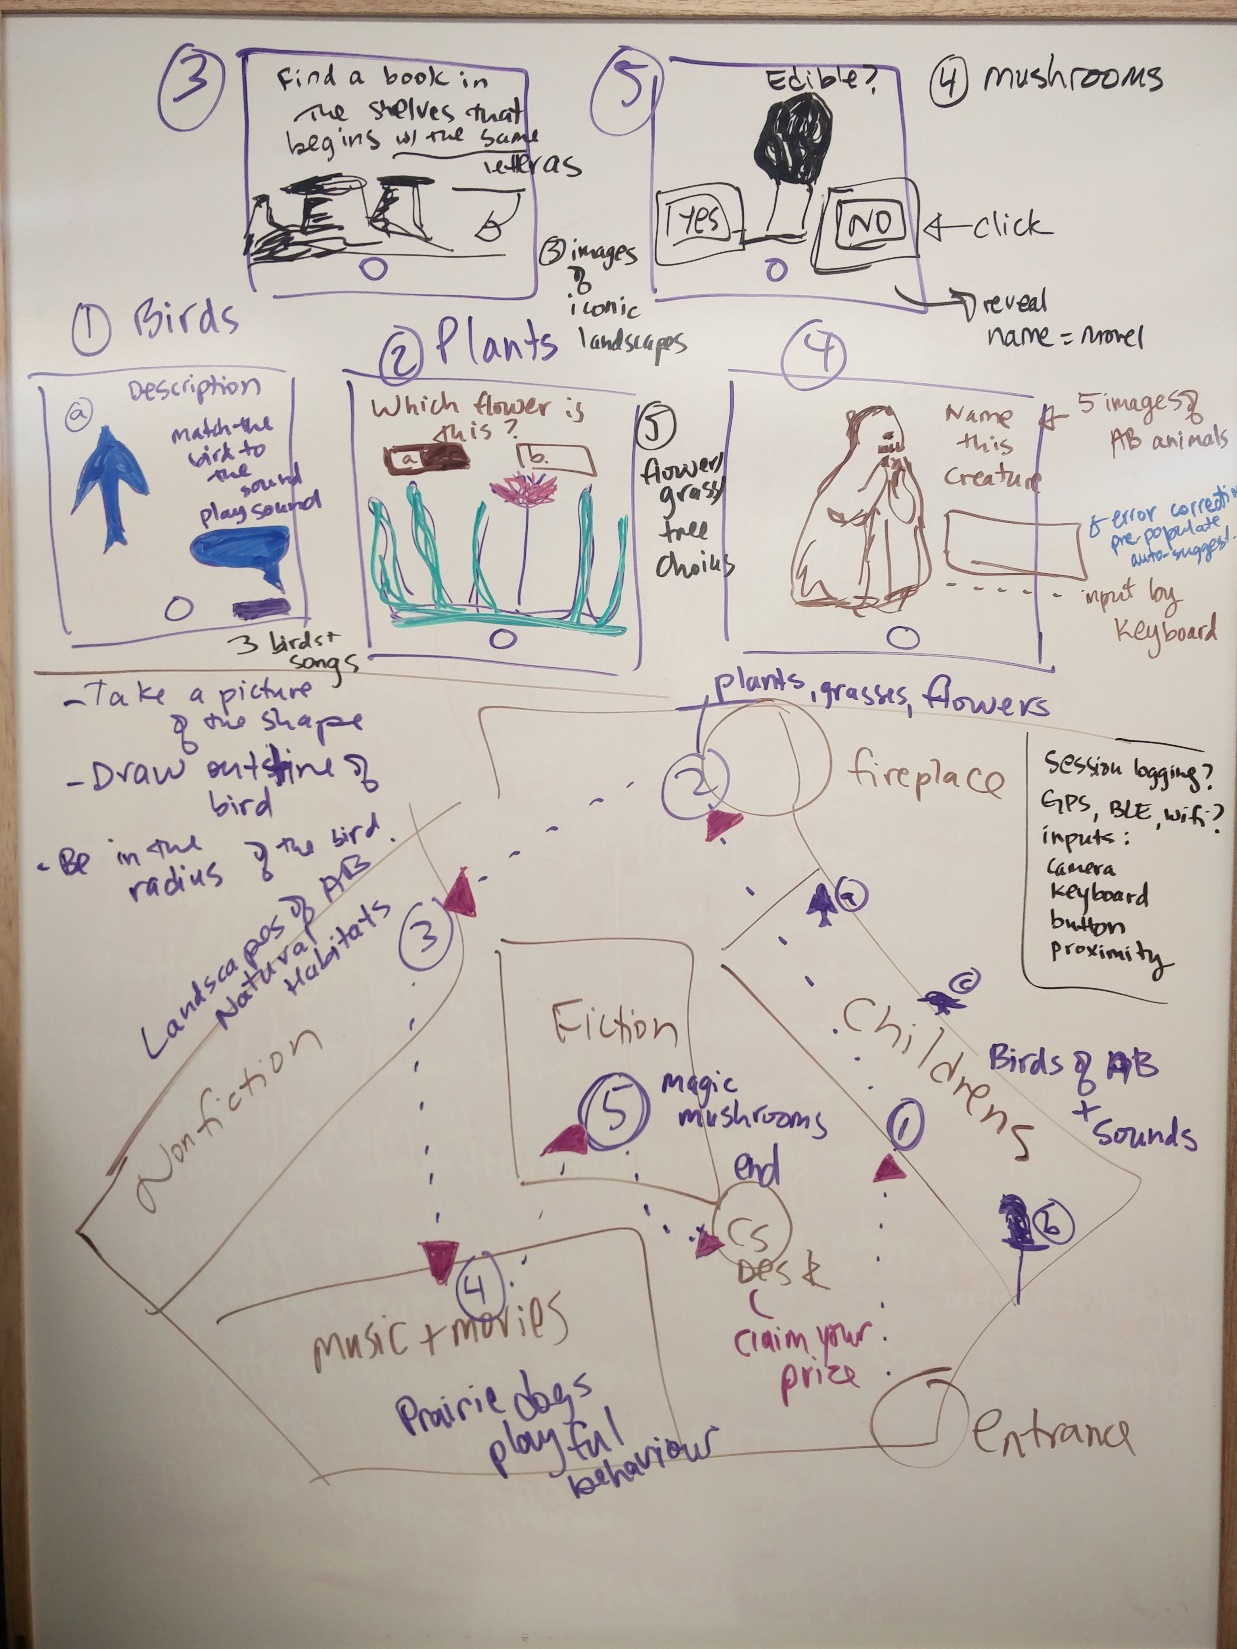 3
Find a book in
the shelves that
begins w/ the same
letter as
③ images
of
iconic
landscapes
5
Edible?
YES
NO
← click
reveal
name = morel
④ mushrooms
① Birds
a
Description
match the
bird to
the
sound
play sound
3 birds +
songs
② Plants
Which flower is
this?
a
b.
⑤
flower/
grass/
tree
choices
4
Name
this
creature
← 5 images of
AB animals
error correction
pre-populate
auto-suggest
input by
keyboard
- Take a picture
of the shape
- Draw outline of
bird
- Be in the
radius of the bird.
plants, grasses, flowers
2
fireplace
Session logging?
GPS, BLE, wifi?
inputs:
camera
keyboard
button
proximity
Landscapes of AB
Natural
Habitats
3
a
c
Nonfiction
Fiction
Childrens
Birds of AB
+
Sounds
5
magic
mushrooms
1
end
CS
Desk
b
4
music + movies
Prairie dogs
playful
behaviour
claim your
prize
entrance